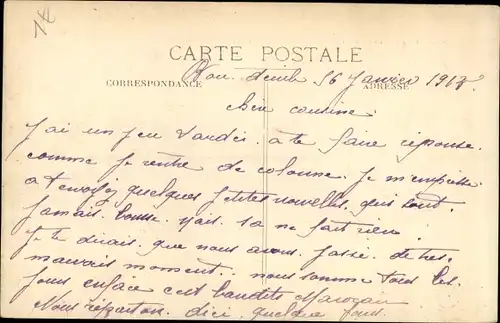 CARTE POSTALE
CORRESPONDANCE
ADRESSE
Bou Denib 16 Janvier 1913
Cher cousine
J'ai un peu tardér a te faire reponse.
comme je rentre de colonne. Je m'empresse
a t'envoyé quelques petites nouvelles qui sont
jamais bonne. mais sa ne fait rien
Je te dirais que nous avons passé de tres
mauvais moment. nous somme tous les
jours enface cest bandits Marocain
Nous repartons dici quelque jours